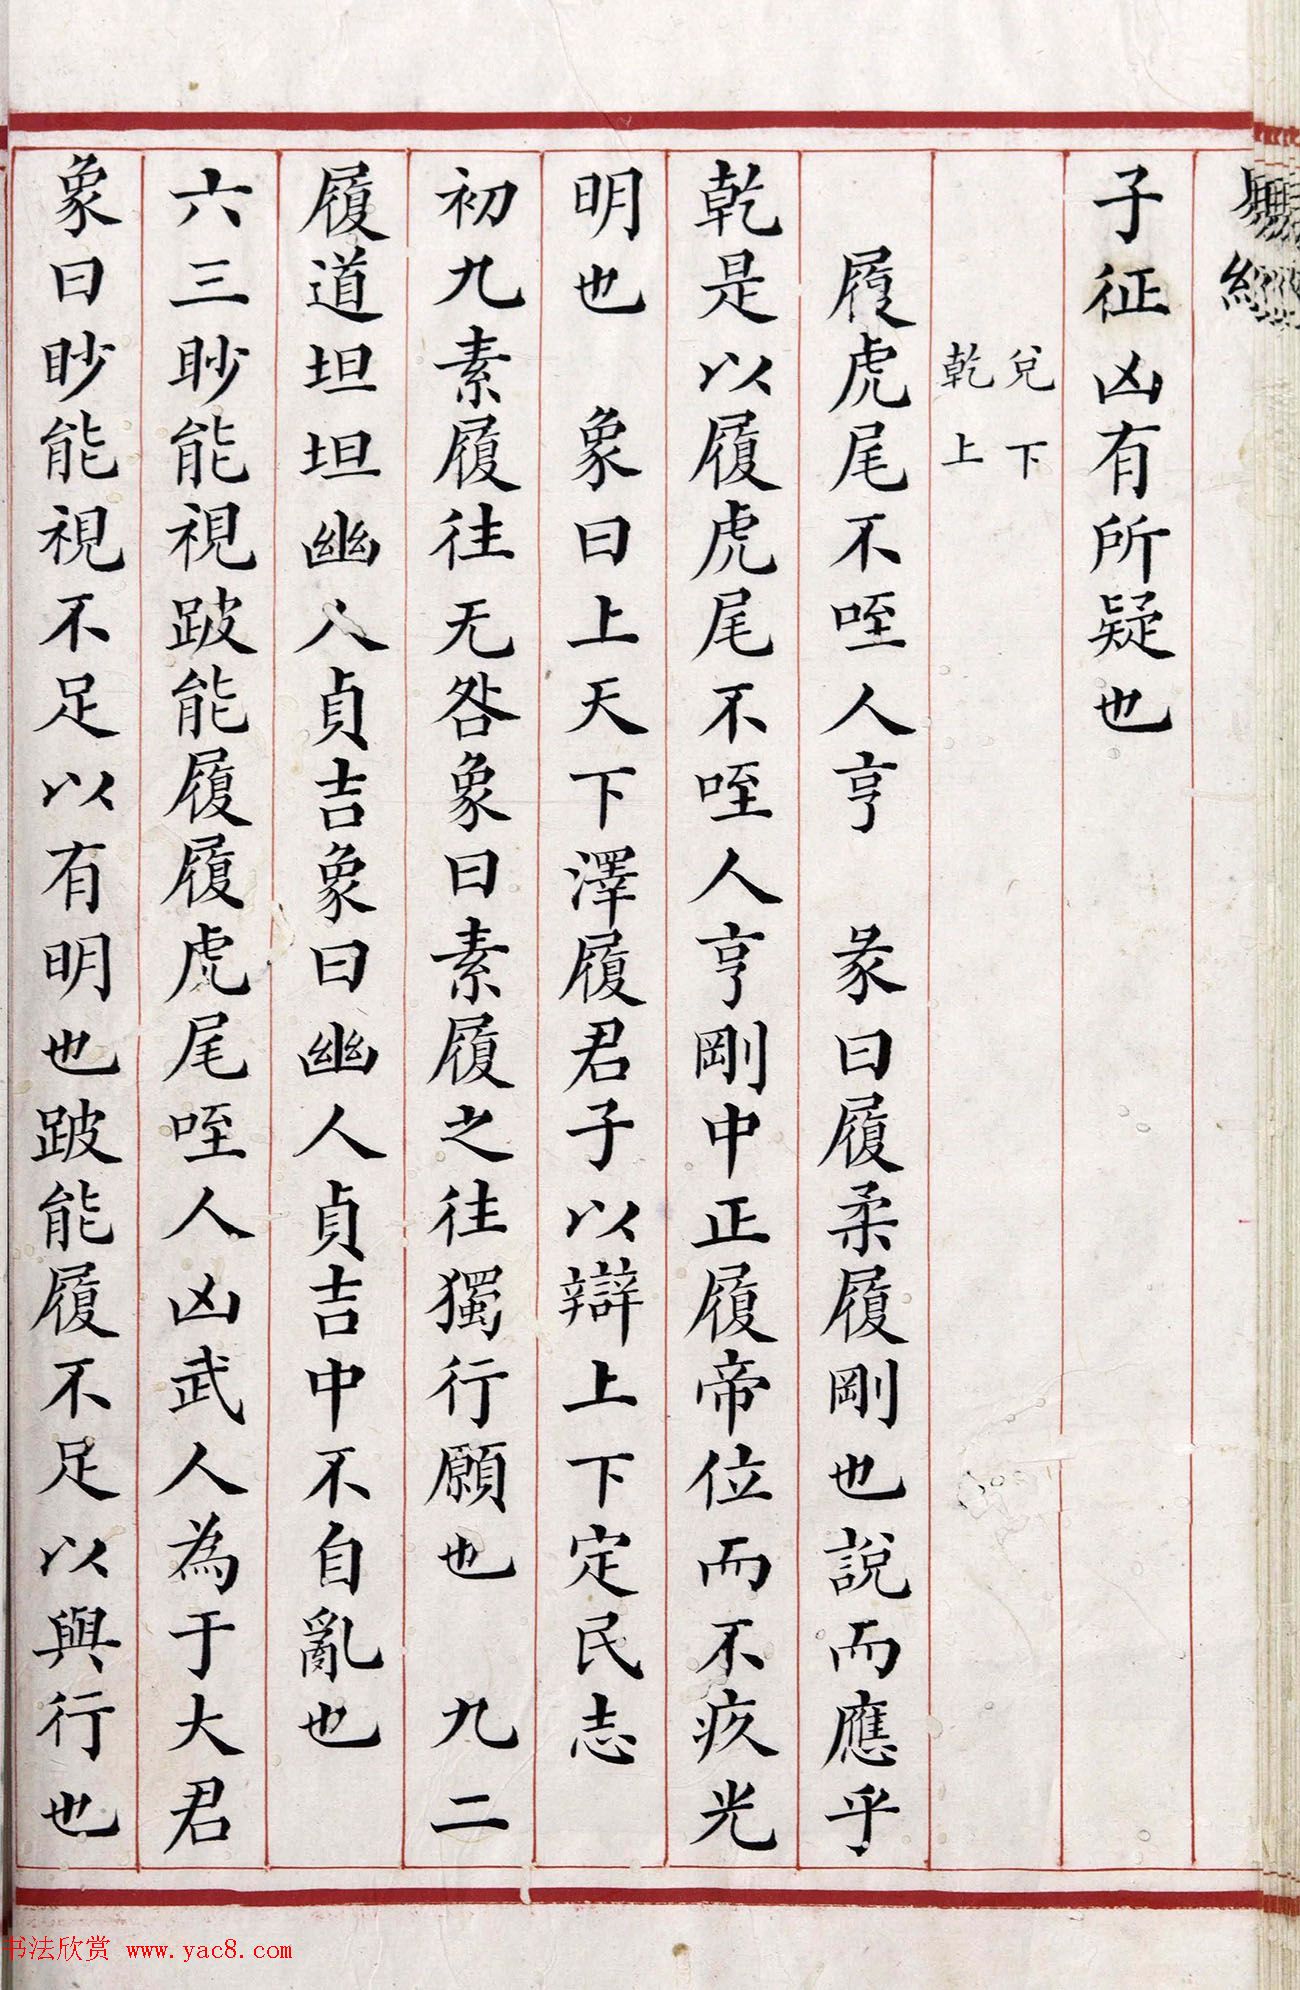 子征凶有所疑也
兌下
乾上
履虎尾不咥人亨　彖曰履柔履剛也說而應乎
乾是以履虎尾不咥人亨剛中正履帝位而不疚光
明也　象曰上天下澤履君子以辯上下定民志
初九素履往无咎象曰素履之往獨行願也　九二
履道坦坦幽人貞吉象曰幽人貞吉中不自亂也
六三眇能視跛能履履虎尾咥人凶武人為于大君
象曰眇能視不足以有明也跛能履不足以與行也
书法欣赏 www.yac8.com